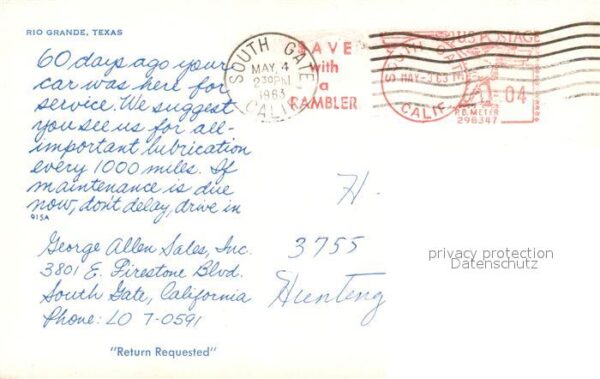 RIO GRANDE, TEXAS
60 days ago your
car was here for
service. We suggest
you see us for all-
important lubrication
every 1000 miles. If
maintenance is due
now, don't delay, drive in
Q15A
George Allen Sales, Inc.
3801 E. Firestone Blvd.
South Gate, California
Phone: LO 7-0591
"Return Requested"
SOUTH GATE
MAY 4
230PM
1963
CALIF.
SAVE
with
a
RAMBLER
SOUTH GATE
MAY-3'63
CALIF.
U.S. POSTAGE
04
P.B. METER
298347
H.
3755
Hunting
privacy protection
Datenschutz